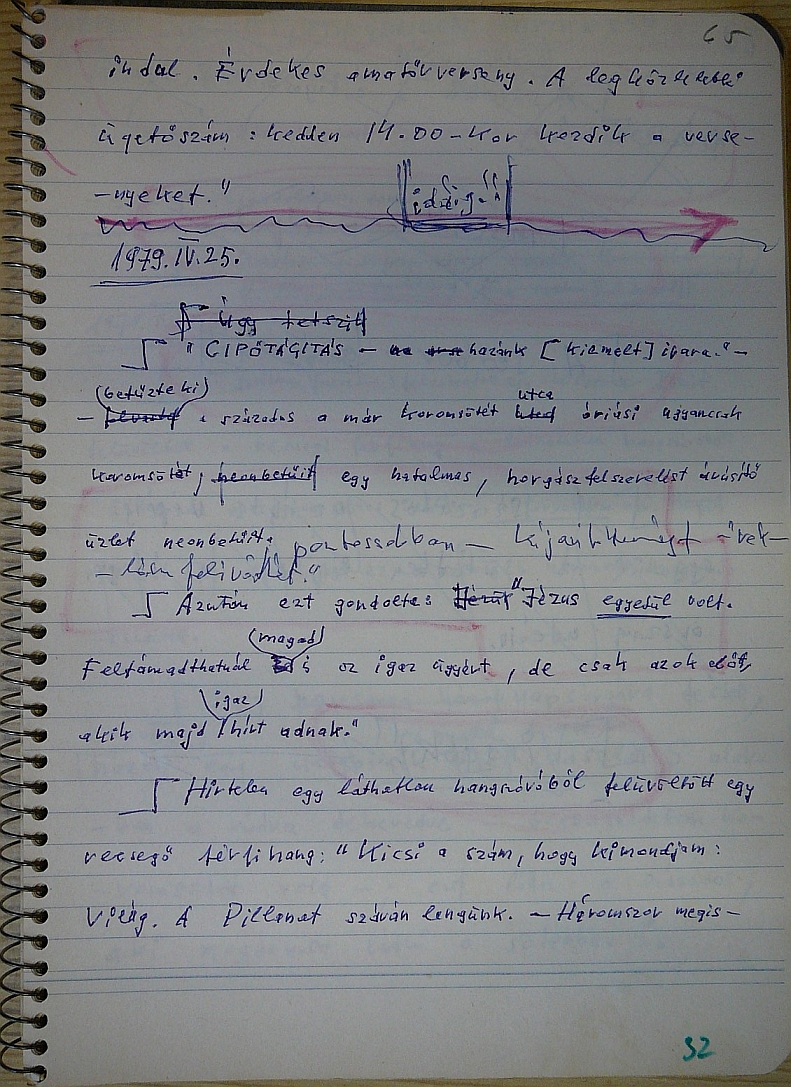 65
indul. Érdekes amatőrverseny. A legközelebbi
ügetőszám: kedden 14.00-kor kezdik a verse-
-nyeket."
idáig!!
1979.IV.25.
Úgy tetszik
"CIPŐTÁGÍTÁS – hazánk [kiemelt] ipara." –
(betűzte ki)
utca
– a százados a már koromsötét óriási ugyancsak
koromsötét, neonbetűit egy hatalmas, horgászfelszerelést árusító
üzlet neonbetűit.
Azután ezt gondolta: "Jézus egyedül volt.
(magad)
Feltámadthatnál is az igaz ügyért, de csak azok előtt,
igaz
akik majd hírt adnak."
Hirtelen egy láthatlan hangszóróból felüvöltött egy
recsegő férfihang: "Kicsi a szám, hogy kimondjam:
Világ. A Pillanat száván lengünk. – Háromszor megis-
32